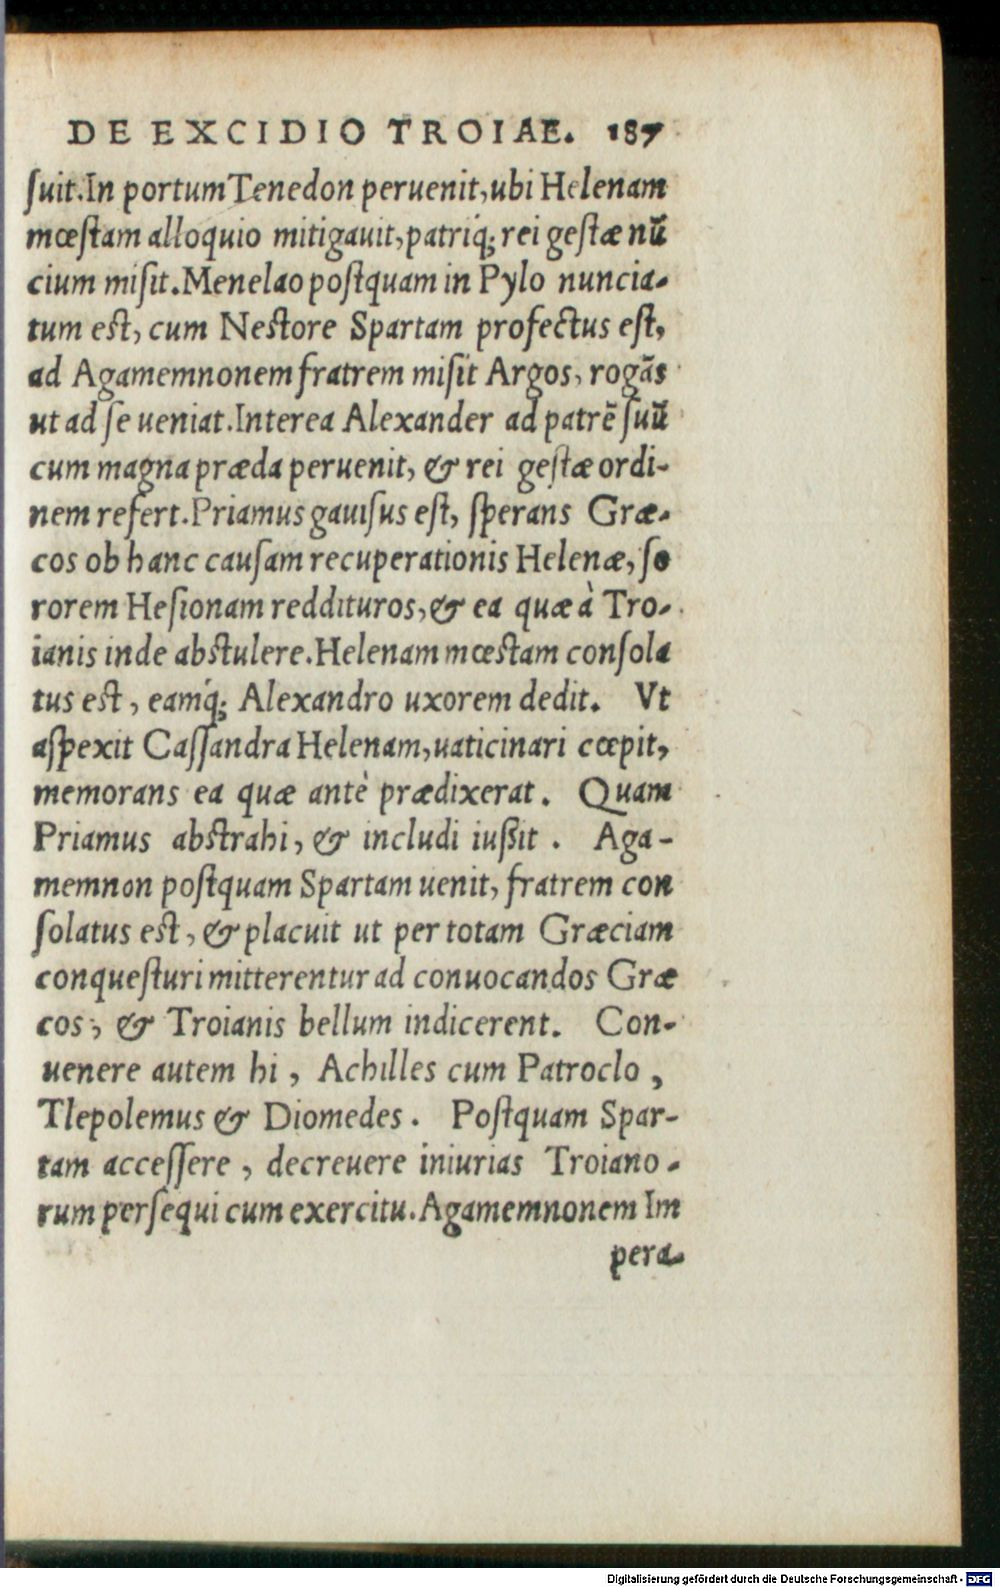 DE EXCIDIO TROIAE. 187
ſuit.In portum Tenedon peruenit,ubi Helenam
mœſtam alloquio mitigauit,patriq́; rei geſtæ nū
cium miſit.Menelao poſtquam in Pylo nuncia-
tum eſt, cum Neſtore Spartam profectus eſt,
ad Agamemnonem fratrem miſit Argos, rogãs
ut ad ſe ueniat.Interea Alexander ad patrē ſuū
cum magna præda peruenit, & rei geſtæ ordi-
nem refert.Priamus gauiſus eſt, ſperans Græ-
cos ob hanc cauſam recuperationis Helenæ, ſo
rorem Heſionam reddituros,& ea quæ à Tro-
ianis inde abſtulere.Helenam mœſtam conſola
tus eſt, eamq́; Alexandro uxorem dedit. Vt
aſpexit Caſſandra Helenam,uaticinari cœpit,
memorans ea quæ antè prædixerat. Quam
Priamus abſtrahi, & includi iußit. Aga-
memnon poſtquam Spartam uenit, fratrem con
ſolatus eſt, & placuit ut per totam Græciam
conqueſturi mitterentur ad conuocandos Græ
cos, & Troianis bellum indicerent. Con-
uenere autem hi, Achilles cum Patroclo,
Tlepolemus & Diomedes. Poſtquam Spar-
tam acceſſere, decreuere iniurias Troiano-
rum perſequi cum exercitu.Agamemnonem Im
pera-
Digitalisierung gefördert durch die Deutsche Forschungsgemeinschaft - DFG